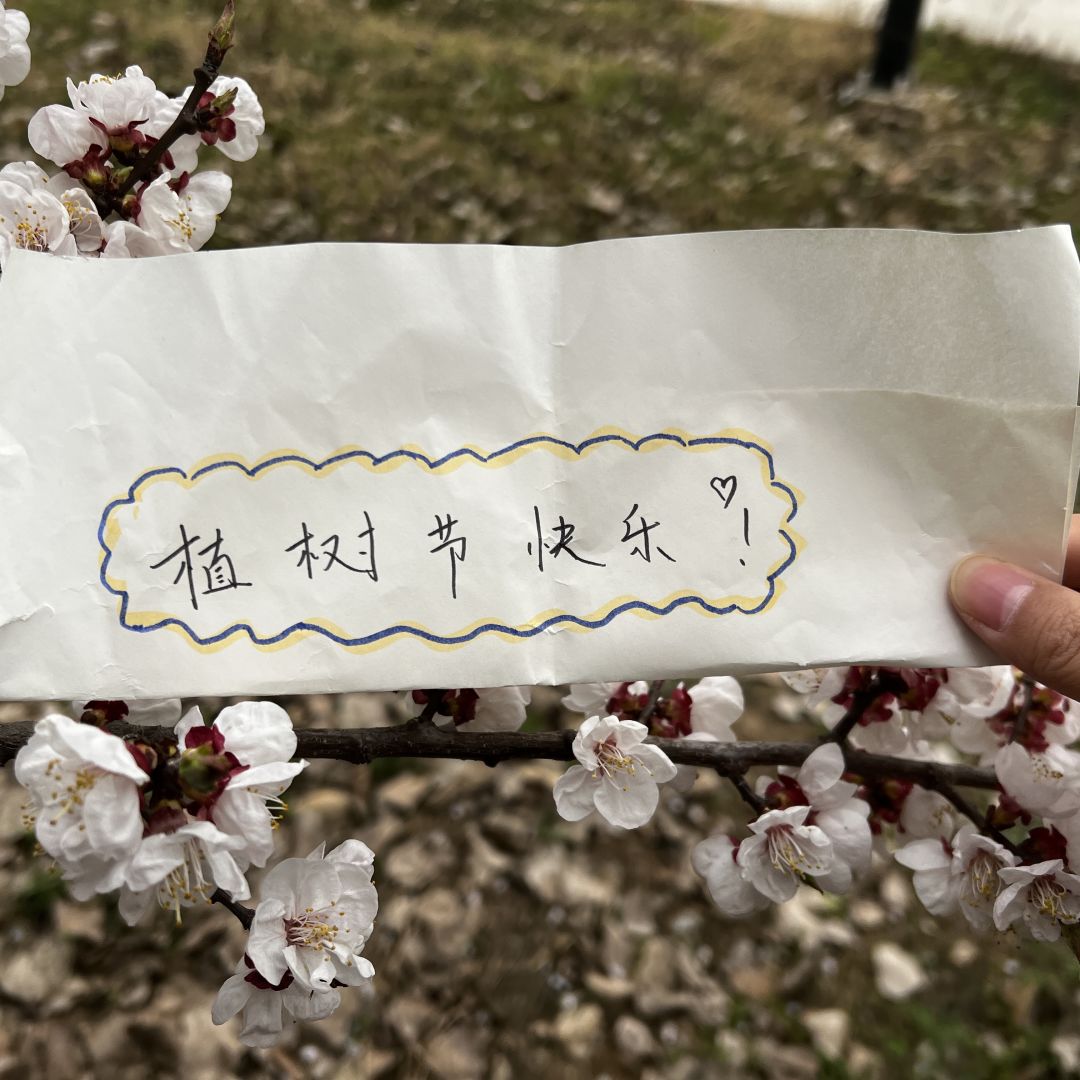 植树节快乐!